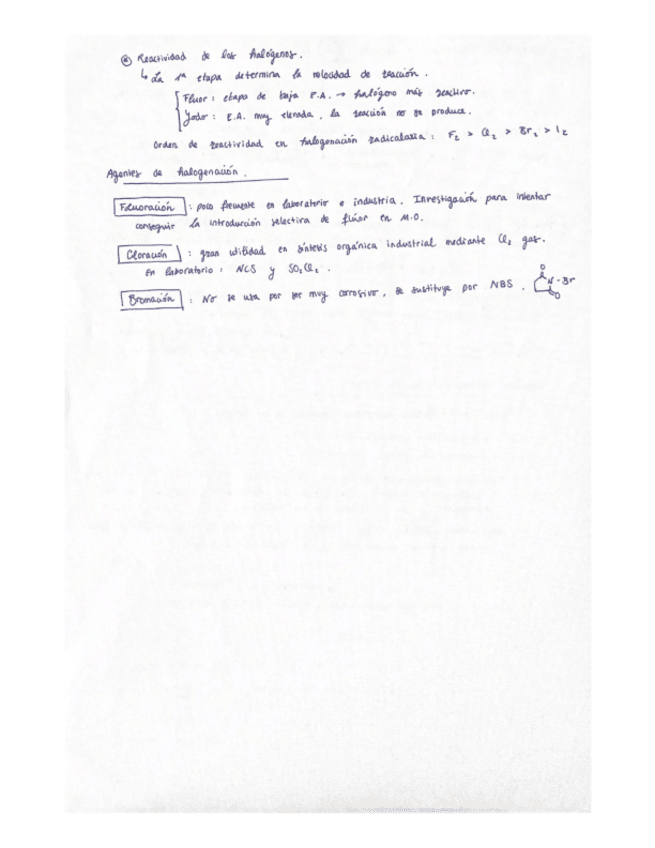 Ⓡ Reactividad de los halógenos.
↳ La 1ª etapa determina la velocidad de reacción.
Flúor: etapa de baja E.A. → halógeno más reactivo.
Yodo: E.A. muy elevada, la reacción no se produce.
Orden de reactividad en halogenación radicalaria: F₂ > Cl₂ > Br₂ > I₂
Agentes de halogenación.
Fluoración: poco frecuente en laboratorio e industria. Investigación para intentar
conseguir la introducción selectiva de flúor en M.O.
Cloración: gran utilidad en síntesis orgánica industrial mediante Cl₂ gas.
En laboratorio: NCS y SO₂Cl₂.
Bromación: No se usa por ser muy corrosivo, se sustituye por NBS. O N-Br O